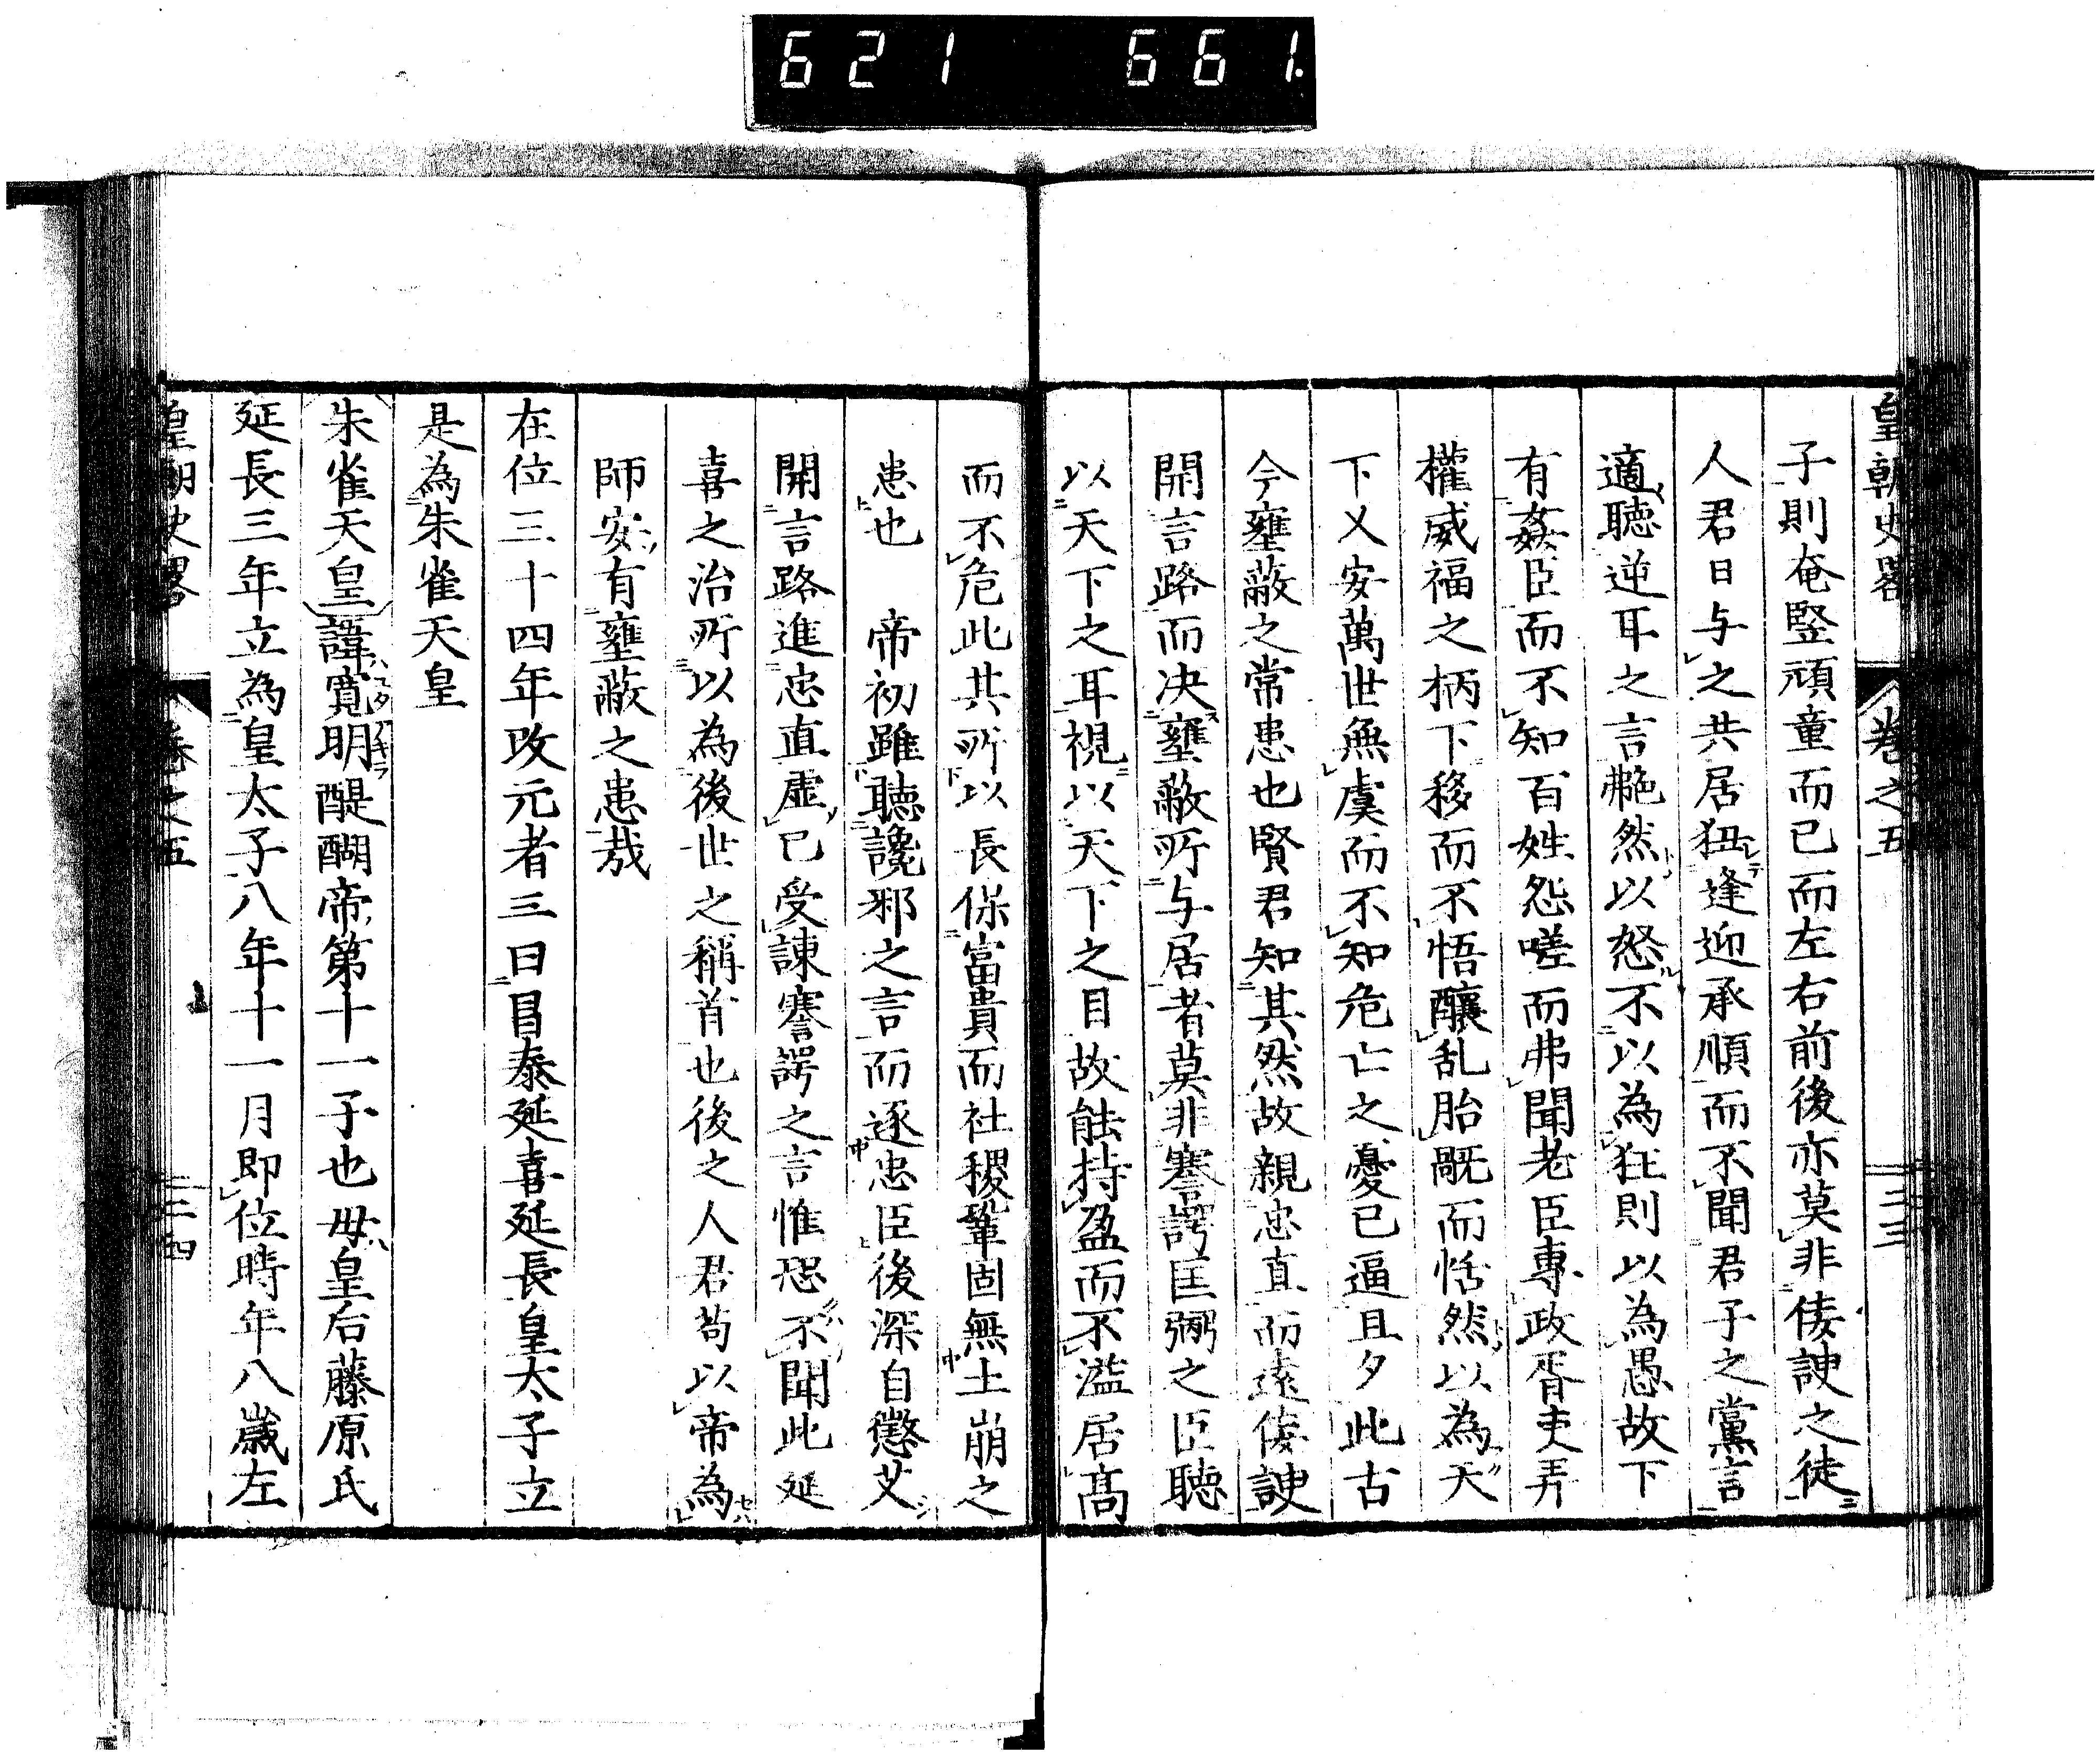 621 661.
皇朝史畧 卷之五 三三
子則奄竪頑童而已而左右前後亦莫非倿諛之徒
人君日与之共居狃逢迎承順而不聞君子之黨言
適聴逆耳之言艴然以怒不以為狂則以為愚故下
有姦臣而不知百姓怨嗟而弗聞老臣專政胥吏弄
權威福之柄下移而不悟釀乱胎戝而恬然以為天
下乂安萬世無虞而不知危亡之憂已逼且夕此古
今壅蔽之常患也賢君知其然故親忠直而遠倿諛
開言路而决壅蔽所与居者莫非謇諤匡弼之臣聴
以天下之耳視以天下之目故能持盈而不滥居高
而不危此其所以長保富貴而社稷鞏固無土崩之
患也 帝初雖聴讒邪之言而逐忠臣後深自懲艾
開言路進忠直虚已受諌謇諤之言惟恐不聞此延
喜之治所以為後世之稱首也後之人君苟以帝為
師安有壅蔽之患哉
在位三十四年改元者三曰昌泰延喜延長皇太子立
是為朱雀天皇
朱雀天皇諱寛明醍醐帝第十一子也母皇后藤原氏
延長三年立為皇太子八年十一月即位時年八歳左
皇朝史畧 卷之五 三四